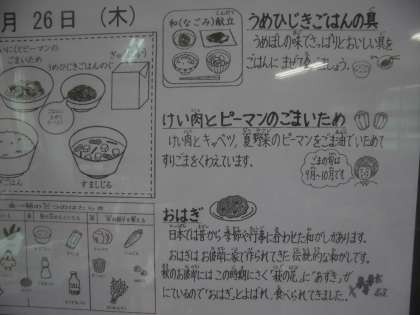 月 26 日 (木)
和(なごみ)献立
うめひじきごはんの具
うめぼしの味でさっぱりとおいしい具を
ごはんに まぜて食べましょう。
ピーマンの
ごまいため
うめひじきごはんのぐ
ごはん
すましじる
けい肉とピーマンのごまいため
けい肉と キャベツ、夏野菜のピーマンをごま油でいためて
すりごまをくわえています。
ごまの旬は
9月~10月です
おはぎ
日本では昔から 季節や行事に合わせた和がしがあります。
おはぎは お彼岸に家で作られてきた 伝統的な和がしです。
秋のお彼岸には この時期にさく「萩の花」に「あずき」が
にているので「おはぎ」とよばれ、食べられてきました。